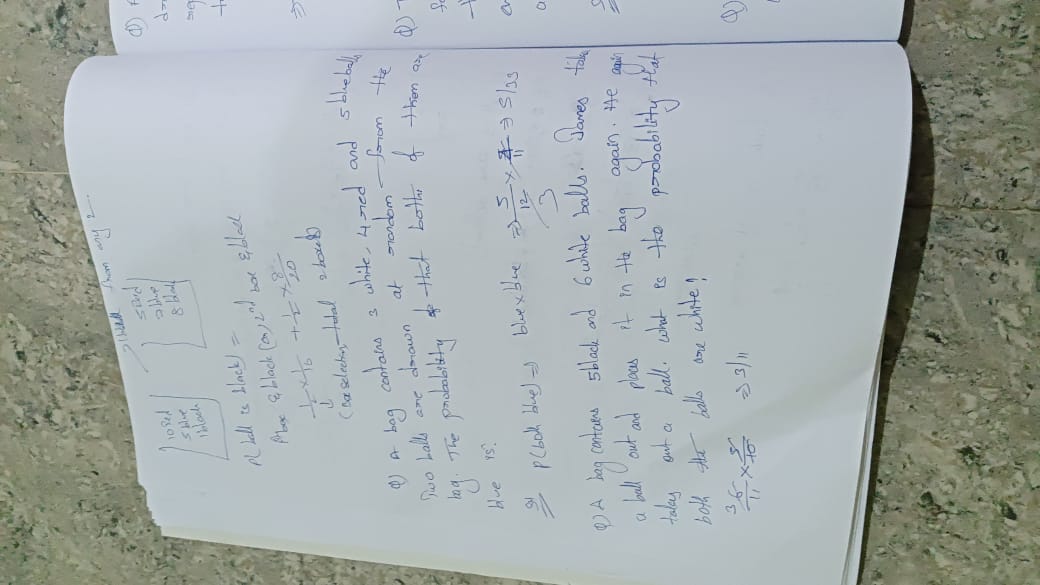 1 ball from any 2....
10 red
5 blue
1 black
5 red
7 blue
8 black
P( ball is black) =
1st box & black (or) 2nd box & black
1/2 × 1/16 + 1/2 × 8/20
(box selection, total 2 boxes)
Q) A bag contains 3 white, 4 red and 5 blue balls
Two balls are drawn at random from the
bag. The probability of that both of them are
blue is?
P(both blue) => blue x blue => 5/12 × 4/11 => 5/33
3
Q) A bag contains 5 black and 6 white balls. James take
a ball out and places it in the bag again. He again
takes out a ball. what is the probability that
both the balls are white?
3 6/11 × 5/10 => 3/11
Q)
Q)
Q)